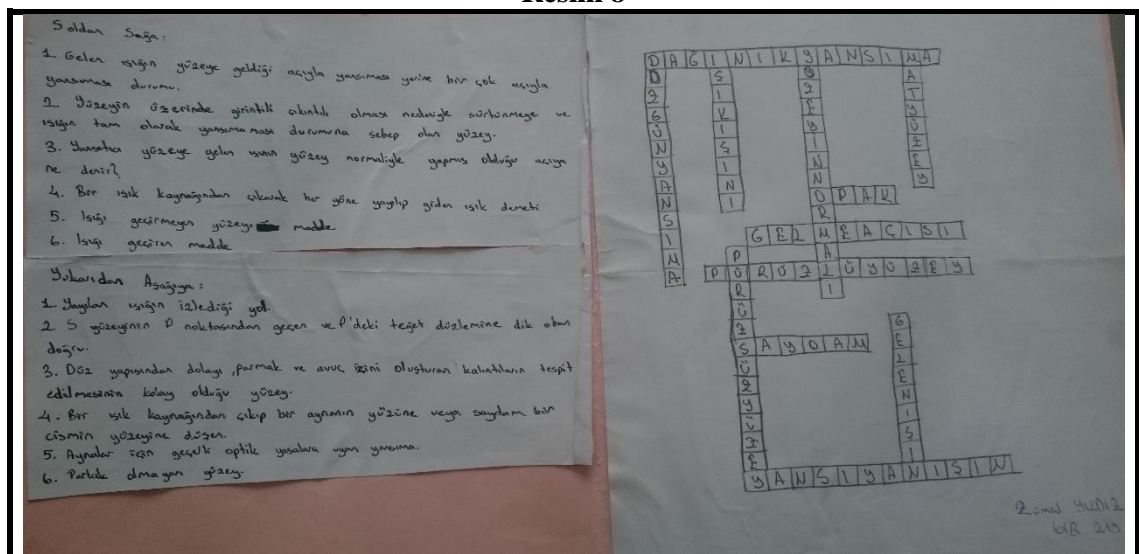 Soldan Sağa:
1. Gelen ışığın yüzeye geldiği açıyla yansıması yerine bir çok açıyla
yansıması durumu.
2. Yüzeyin üzerinde girintili çıkıntılı olması nedeniyle sürtünmeye ve
ışığın tam olarak yansımaması durumuna sebep olan yüzey.
3. Yansıtıcı yüzeye gelen ışının yüzey normaliyle yapmış olduğu açıya
ne denir?
4. Bir ışık kaynağından çıkarak her yöne yayılıp giden ışık demeti
5. Işığı geçirmeyen madde
6. Işığı geçiren madde
Yukarıdan Aşağıya:
1. Yayılan ışığın izlediği yol.
2. S yüzeyinin P noktasından geçen ve P'deki teğet düzlemine dik olan
doğru.
3. Düz yapısından dolayı, parmak ve avuç izini oluşturan kalıntıların tespit
edilmesinin kolay olduğu yüzey.
4. Bir ışık kaynağından çıkıp bir aynanın yüzüne veya saydam bir
cismin yüzeyine düşen.
5. Aynalar için geçerli optik yasalara uyan yansıma.
6. Parlak olmayan yüzey.
DAGINIKYANSIMA
DÜZGÜNYANSIMA
IŞIKIŞINI
YÜZEYINNORMALI
MATYÜZEY
OPAK
GELMEAÇISI
PÜRÜZLÜYÜZEY
PÜRÜZSÜZYÜZEY
SAYDAM
GELENIŞI
YANSIYANISIN
YILDIZ